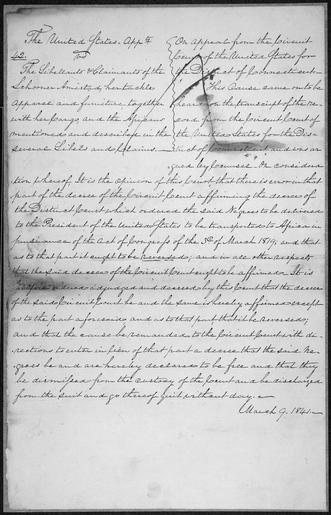 The United States, Appt
42. vs
The Libellants & Claimants of the
Schooner Amistad, her tackle
apparel and furniture, together
with her cargo, and the Africans
mentioned and described in the
several Libels and Claims.
On appeal from the Circuit
Court of the United States for
the District of Connecticut.
This Cause came on to be
heard on the transcript of the re-
cord from the Circuit Court of
the United States for the Dis-
trict of Connecticut and was ar-
gued by Counsel. On considera-
tion whereof, It is the opinion of this Court, that there is error in that
part of the decree of the Circuit Court affirming the decree of
the District Court which ordered the said Negroes to be delivered
to the President of the United States to be transported to Africa in
pursuance of the act of Congress of the 3d of March 1819; and that
as to that part it ought to be reversed; and in all other respects
that the said decree of the Circuit Court ought to be affirmed. It is
ordered adjudged and decreed by this Court that the decree
of the said Circuit Court be and the same is hereby affirmed except
as to the part aforesaid and as to that part that it be reversed;
and that the cause be remanded to the Circuit Court with di-
rections to enter in lieu of that part a decree that the said Ne-
groes be and are hereby declared to be free and that they
be dismissed from the custody of the Court and be discharged
from the suit and go thereof quit without day.
March 9. 1841.